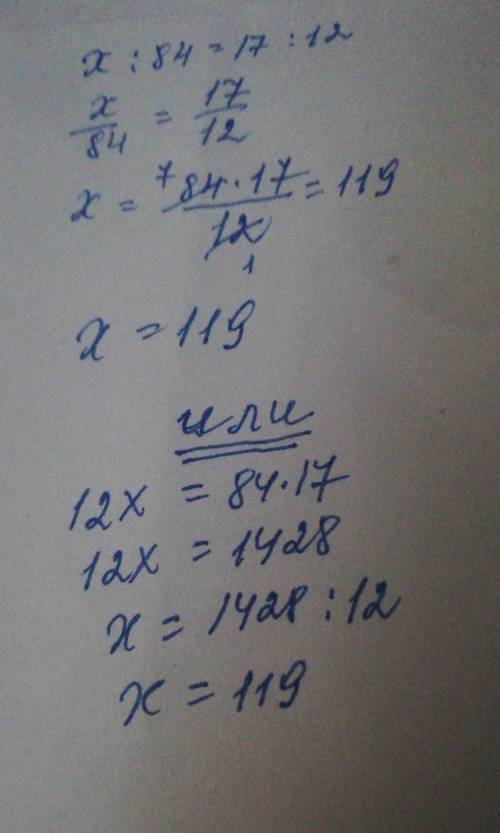 x : 84 = 17 : 12
x/84 = 17/12
x = 7 84·17/12 = 119
1
x = 119
или
12x = 84·17
12x = 1428
x = 1428 : 12
x = 119